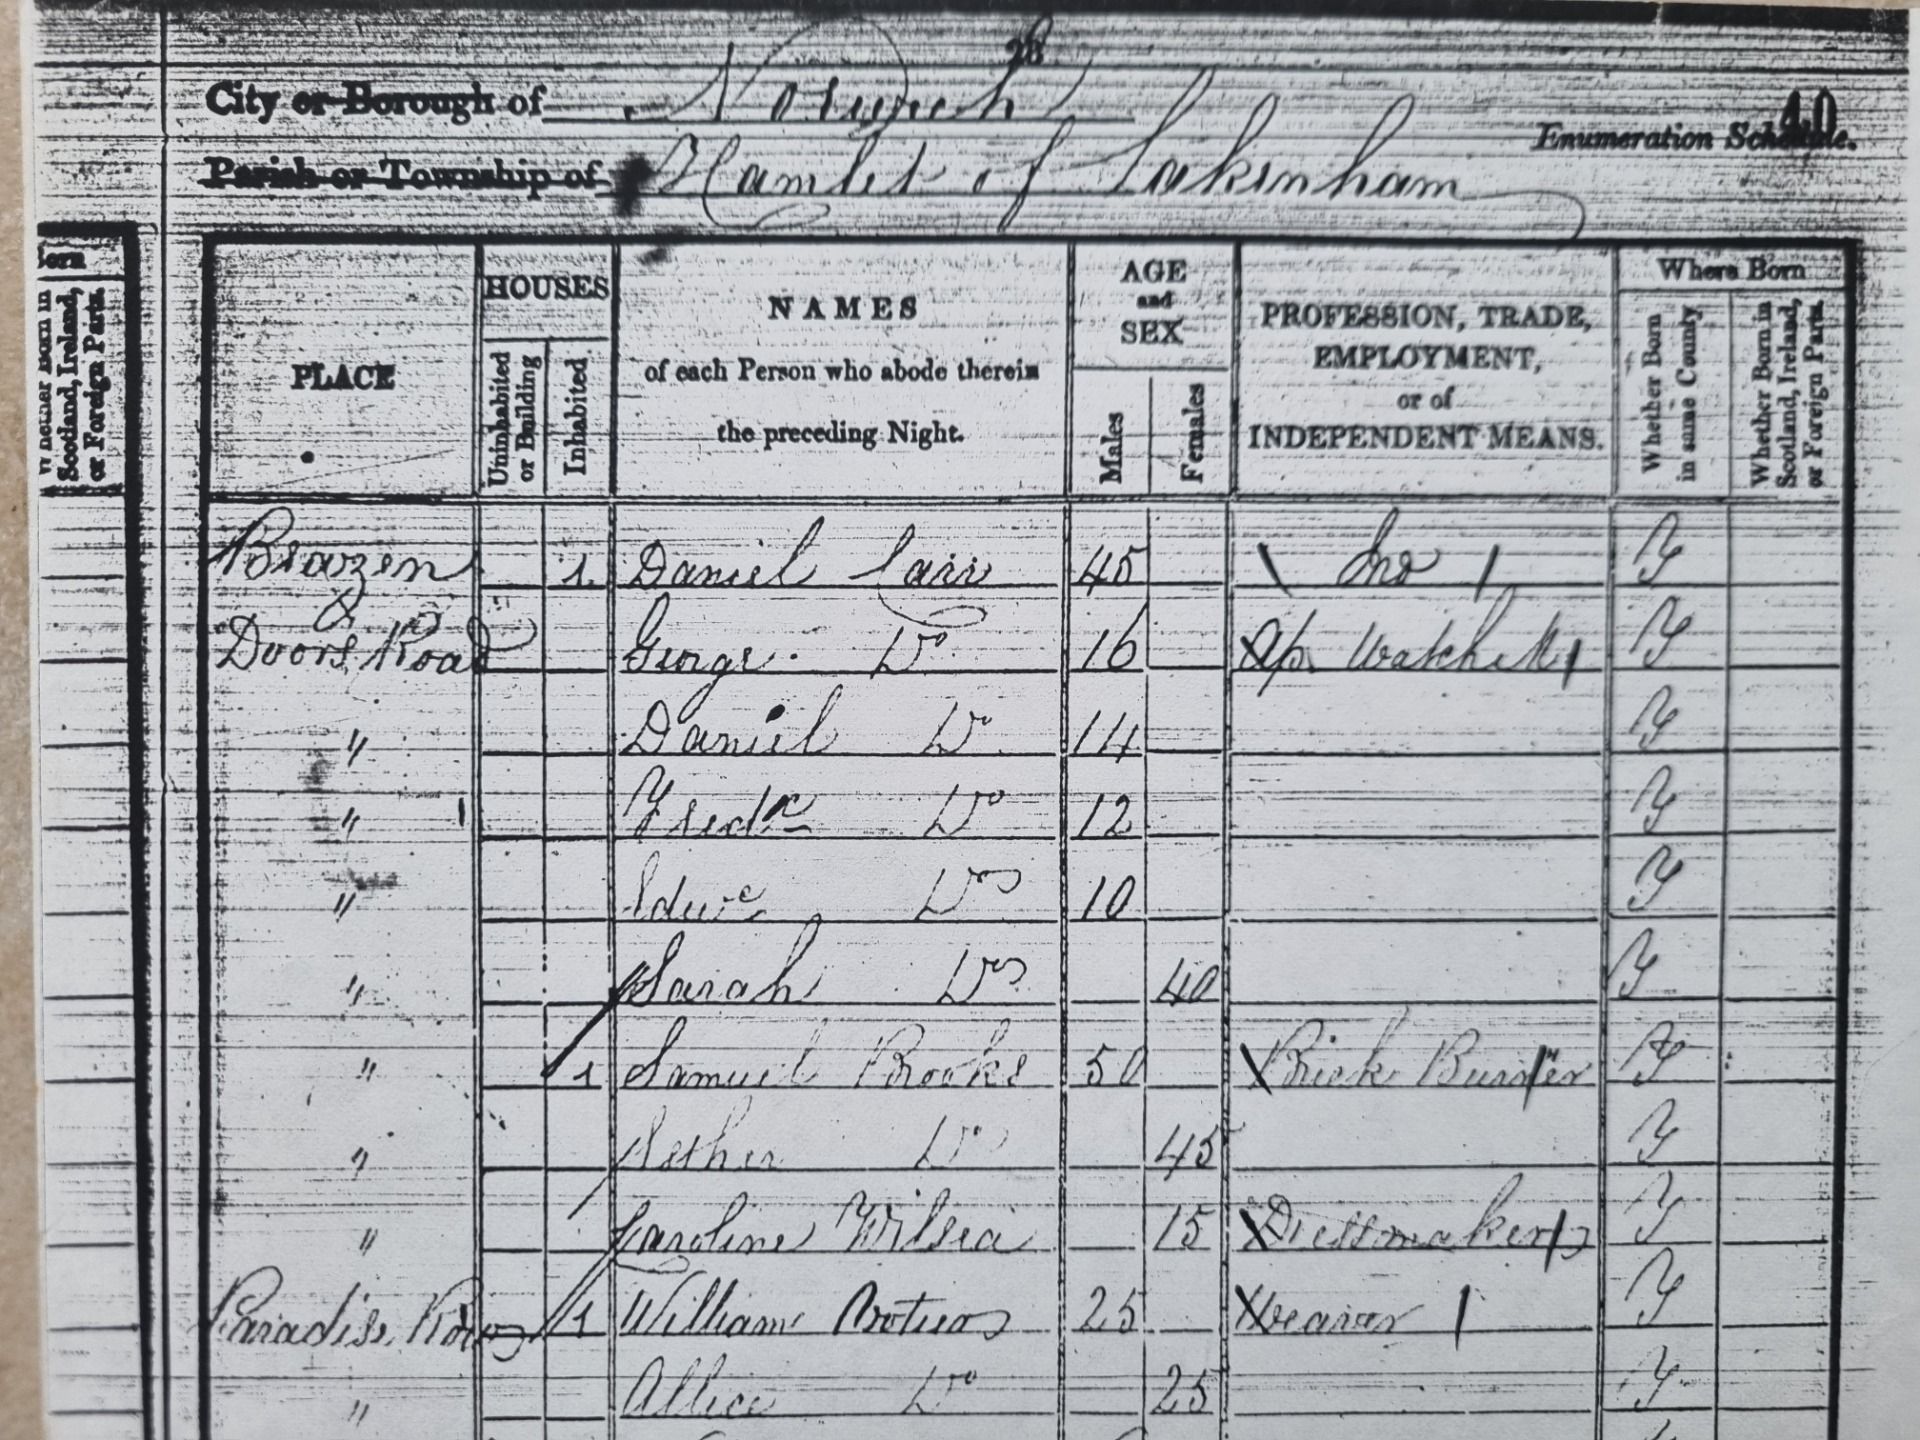 28
City or Borough of Norwich
40
Enumeration Schedule.
Parish or Township of Hamlet of Lakenham
Born
Whether Born in Scotland, Ireland, or Foreign Parts.
PLACE
HOUSES
Uninhabited or Building
Inhabited
NAMES
of each Person who abode therein
the preceding Night.
AGE
and
SEX
Males
Females
PROFESSION, TRADE,
EMPLOYMENT,
or of
INDEPENDENT MEANS.
Where Born
Whether Born in same County
Whether Born in Scotland, Ireland, or Foreign Parts.
Brazen 1 Daniel Carr 45 Y
Doors Road George Do 16 Ap Watch M Y
" Daniel Do 14 Y
" Fredk Do 12 Y
" Do 10 Y
" Sarah Do 40 Y
" 1 Samuel Brooks 50 Brick Burner Y
" Do 45 Y
" Caroline Wilsea 15 Dressmaker Y
Paradise Row 1 William 25 Weaver Y
" Allice Do 25 Y